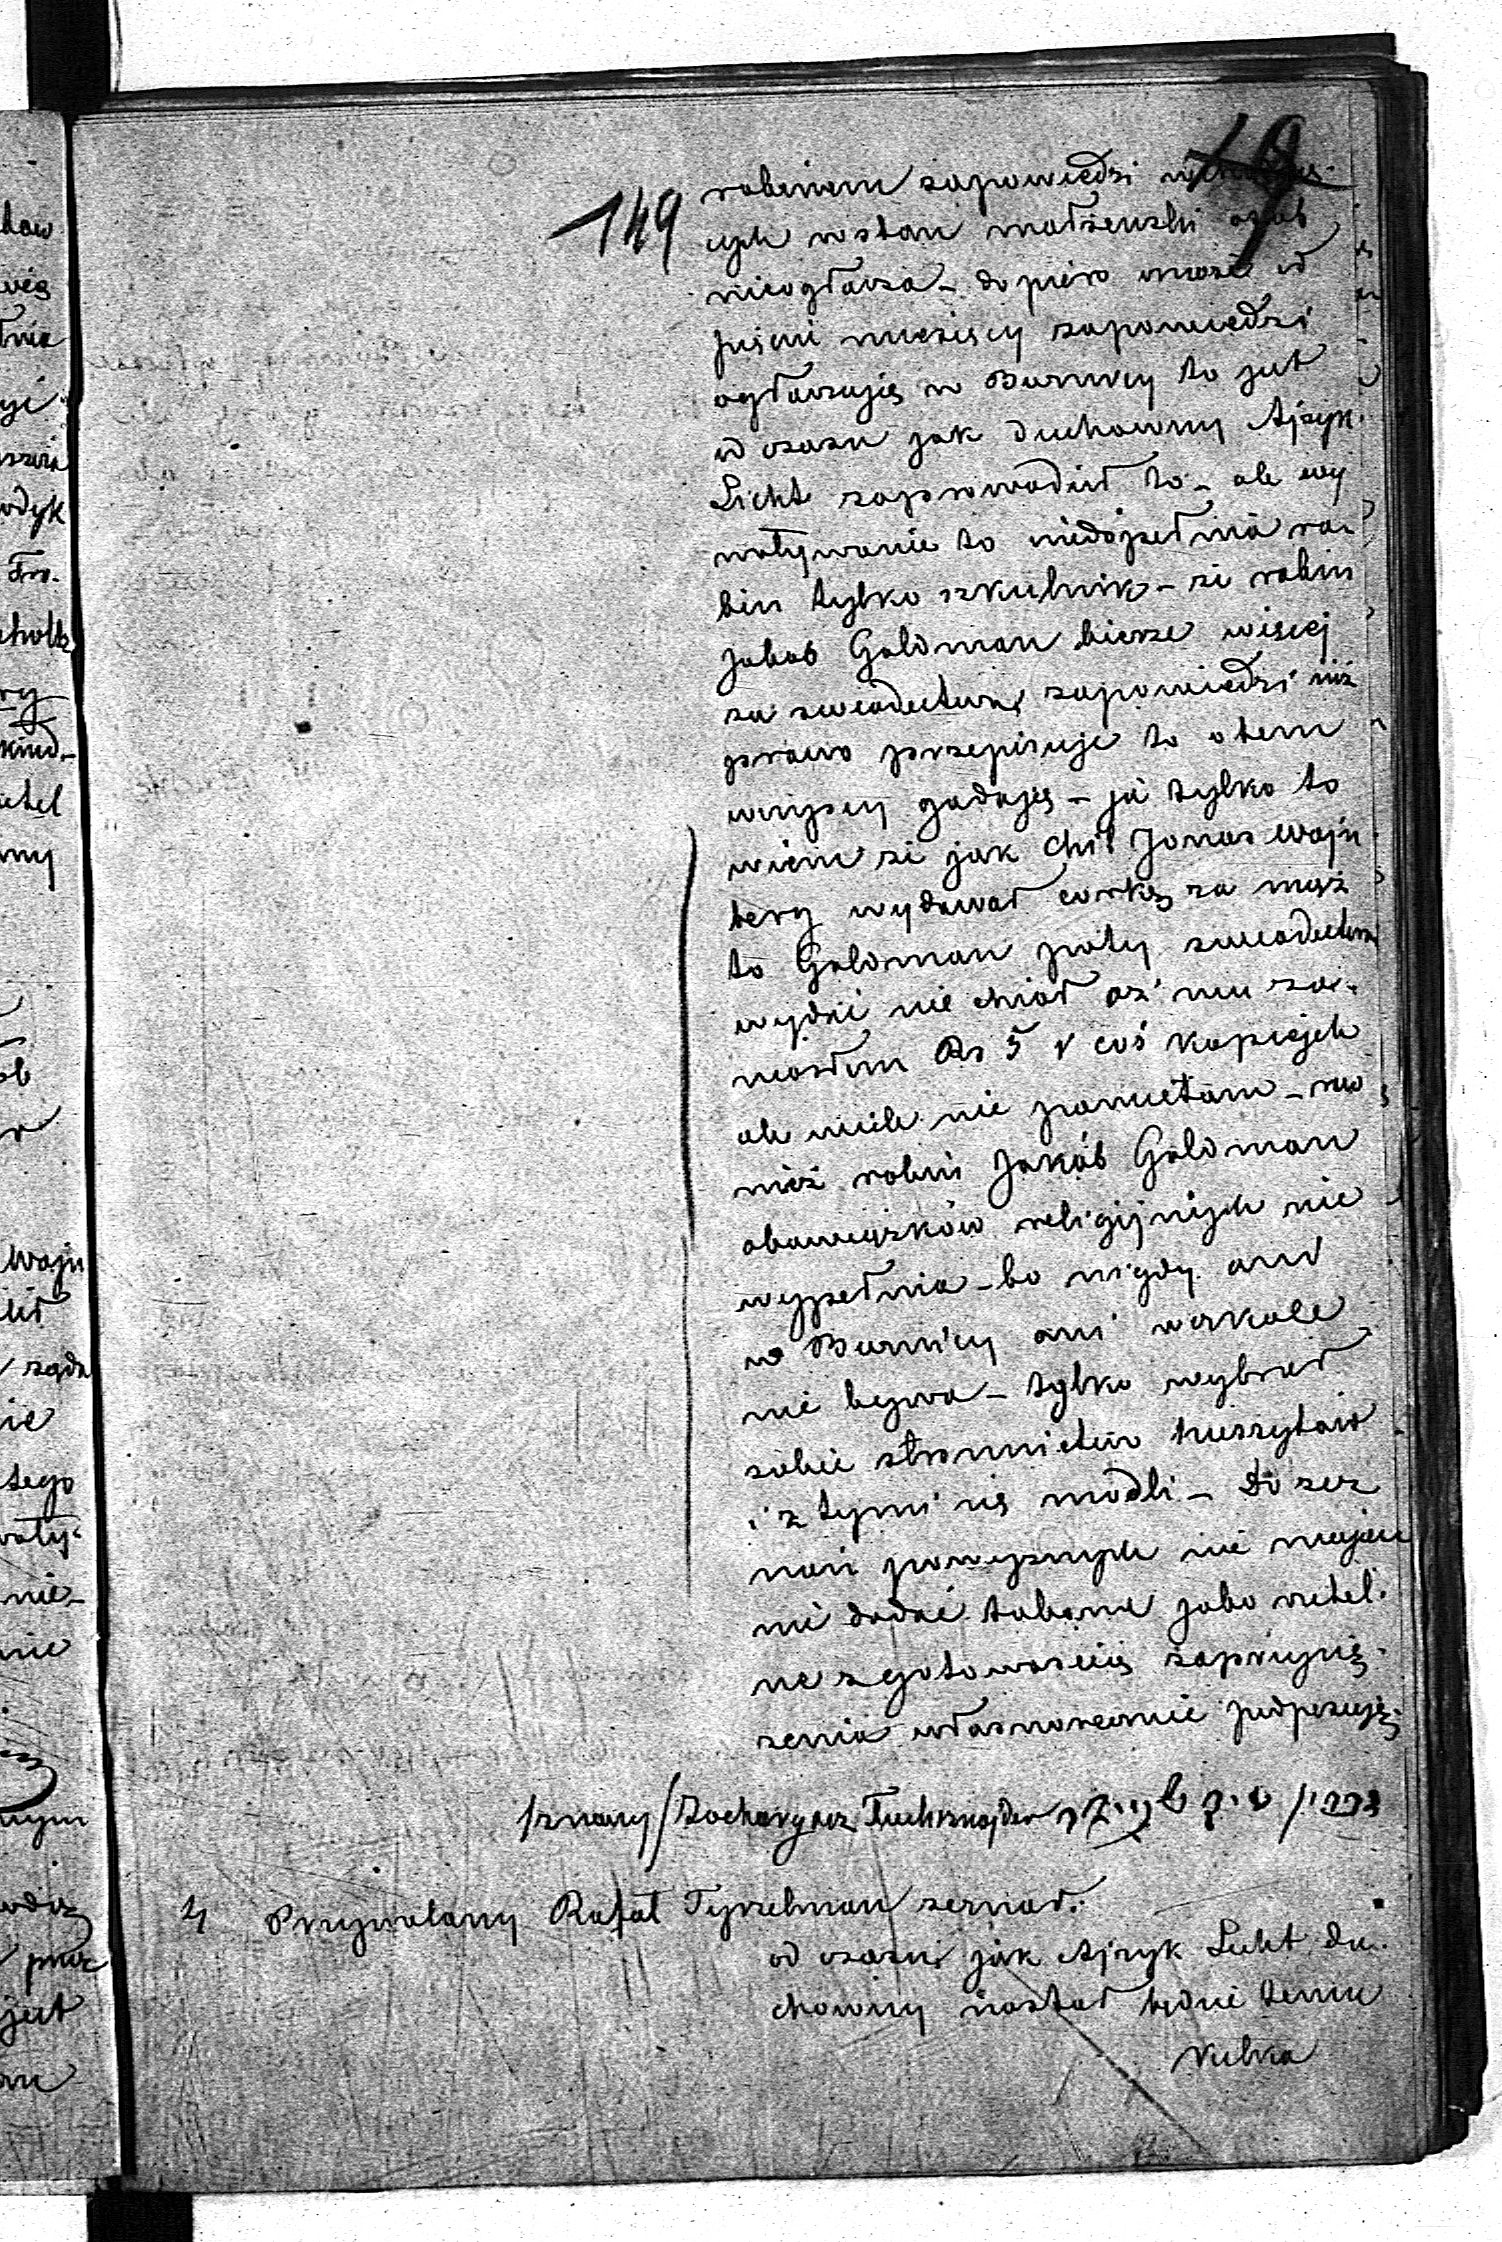 149
rabinem zapowiedzi
cych w stan małżeński osób
nieogłasza – dopiero może od
pięciu miesięcy zapowiedzi
ogłaszają w Buznicy to jest
od czasu jak duchowny Ajzyk
Licht zaprowadził to – ale wy
woływanie to niedopełnia ra-
bin tylko szkulnik – że rabin
Jakob Goldman bierze więcej
za swiadectwa zapowiedzi niż
prawo przepisuje to otem
wszyscy gadają – ja tylko to
wiem że jak Chil Jonas Wajn
berg wydawał corkę za mąż
to Goldman poty swiadectwa
wydać nie chciał aż mu za-
niosłem Rs 5 i coś kopiejek
ale wiele nie pamietam – row
nież rabin Jakób Goldman
obowiązków religijnych nie
wypełnia – bo nigdy ani
w Buznicy ani w szkole
nie bywa – tylko wybrał
sobie stronnictwo huszytów
i z tymi się modli – Do zez
nań powyższych nie mając
nic dodać takowe jako rzetel-
ne z gotowością zaprzysię-
żenia własnoręcznie podpisuję
/znany/ Zacharyasz Tuchsznajder
4 Przywołany Rafał Tyszelman zeznał.
od czasu jak Ajzyk Licht du-
chowny nastał będzie temu
kilka